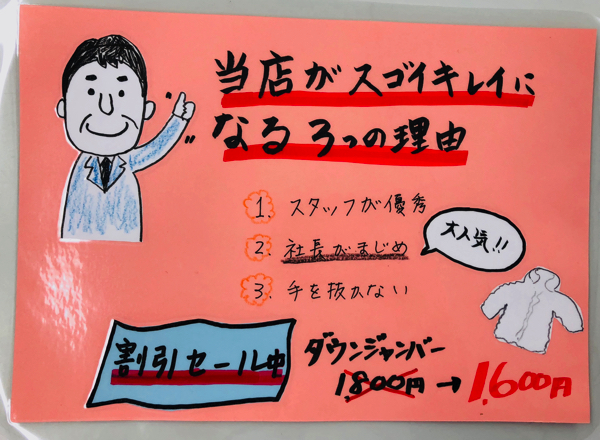 当店がスゴイキレイに
なる3つの理由
1. スタッフが優秀
2. 社長がまじめ
3. 手を抜かない
大人気!!
割引セール中
ダウンジャンバー
1.800円→1.600円